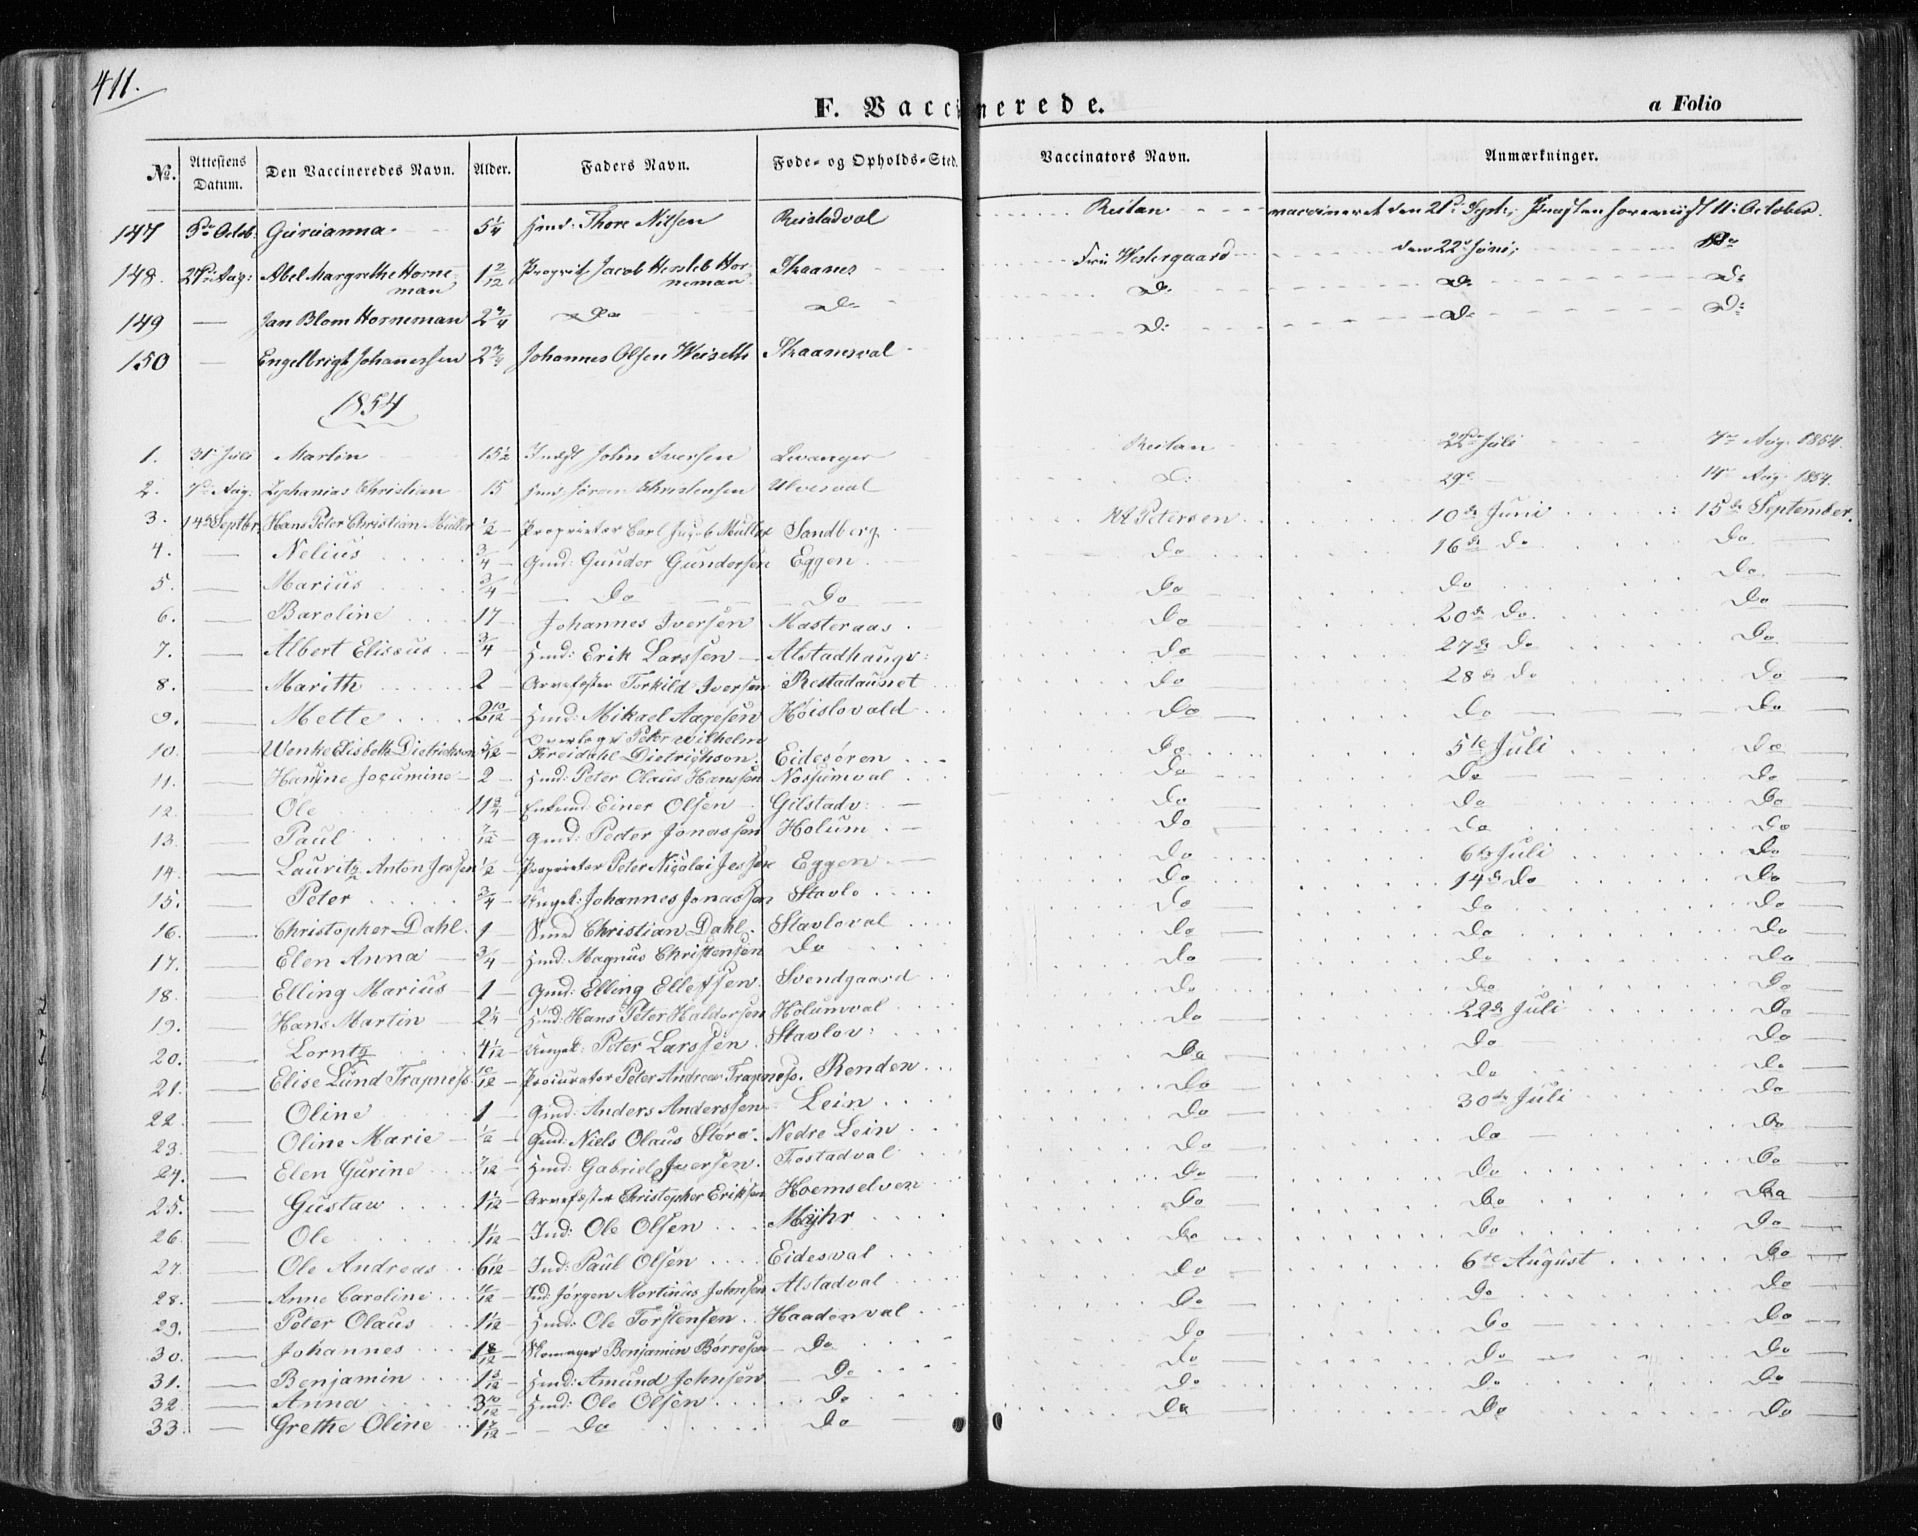 411.
F. Vaccinerede.
a Folio
No. Attestens Datum. Den Vaccineredes Navn. Alder. Faders Navn. Føde- og Opholds-Sted. Vaccinators Navn. Anmærkninger.
147 3de Octob. Gurianna 5 1/4 Hmd: Thore Nilsen Reistadval Reitan vaccineret den 21de Sept:, 11: October.
148. 27de Aug: Abel Margrethe Horneman 1 2/12 Propriet. Jacob Hersleb Horneman Skaanes Fru Westergaard den 22de Juni; Do
149 — Jan Blom Horneman 2 3/4 Do Do Do Do Do
150 — Engelbrigt Johanessen 2 3/4 Johannes Olsen Weiseth Skaanesval Do Do Do
1854
1. 31 Juli Martin 15 1/2 Indst John Iversen Levanger Reitan 22de Juli 7de Aug. 1854.
2. 7de Aug. Zephanias Christian 15 Hmd Jørgen Christensen Ulvesval Do 29de 14de Aug. 1854.
3. 14de Septbr. Hans Peter Christian Müller 1/2 — Proprietær Carl Jacob Müller Sandberg Petersen 10de Juni 15de September.
4. — Nelius 3/4 — Gmd: Gunder Gundersen Eggen Do 16de do Do
5. — Marius 3/4 — Do — Do Do Do Do
6. — Baroline 17 — Johannes Iversen Masteraas Do 20de Do. Do
7. — Albert Eliseus 3/4 — Hmd: Erik Larssen — Alstadhaugv: Do 27de Do Do
8. — Marith 2 — Arvefæster Torkild Iversen Restadaunet Do 28de do Do
9. — Mette 2 10/12 — Hmd: Mikael Aagesen Høislovald Do Do Do
10. — Wenke Elisbeth Dietrichson 5/12 — Overlæge Peter Wilhelm Kreidahl Dietrichson. Eidesøren Do 5te Juli Do
11. — Hansine Jocumine 2 — Hmd: Peter Olaus Hanssen Nossumval Do Do Do
12. — Ole 11 3/4 — Enkemd Einer Olsen Gilstadv: Do Do Do
13. — Paul 7/12 — Gmd: Peder Jonassen Holum Do Do Do
14. — Lauritz Anton Jessen 1/2 — Proprietær Peter Nicolai Jessen Eggen Do 6te Juli Do
15. — Peter 3/4 — Ungk: Johannes Jonassen Stavlo Do 14de do Do
16. — Christopher Dahl. 1 — Christian Dahl. Stavloval Do Do Do
17. — Elen Anna 3/4 — Hmd: Magnus Christensen Do Do Do Do
18. — Elling Marius 1 — Gmd: Elling Ellefsen. Svendgaard Do Do Do
19. — Hans Martin 2 1/4 — Hmd: Hans Peter Haldorsen Holumval Do Do Do
20. — Lorntz 4 1/12 — Ungk: Peter Larssen. Stavlov: Do 22de Juli Do
21. — Elise Lund Trapness 10/12 — Procurator Peter Andreas Trapness. Renden Do Do Do
22. — Oline 1 — Gmd: Anders Anderssen Lein Do Do Do
23. — Oline Marie 1/2 — Gmd: Niels Olaus Støre Nedre Lein Do 30de Juli Do
24. — Elen Gurine 7/12 — Hmd: Gabriel Iversen. Fostadval Do Do Do
25. — Gustav 1 1/12 — Arvefæster Christopher Eriksen Hoemselven Do Do Do
26. — Ole 1 1/12 — Ind: Ole Olsen Mÿhr Do Do Do
27. — Ole Andreas 6 1/12 — Ind: Paul Olsen Eidesval Do Do Do
28. — Anne Caroline 11/12 — Ind: Jørgen Mortinus Johnsen Alstadval Do 6te August Do
29. — Peter Olaus 1 1/12 — Hmd: Ole Torstensen Haadenval Do Do Do
30. — Johannes 1 8/12 — Skomager Benjamin Børresen Do Do Do Do
31. — Benjamin 1 3/12 — Hmd: Amund Johnsen Do Do Do Do
32. — Anna 3 10/12 — Hmd: Ole Olsen Do Do Do Do
33. — Grethe Oline 1 7/12 — Do Do Do Do Do